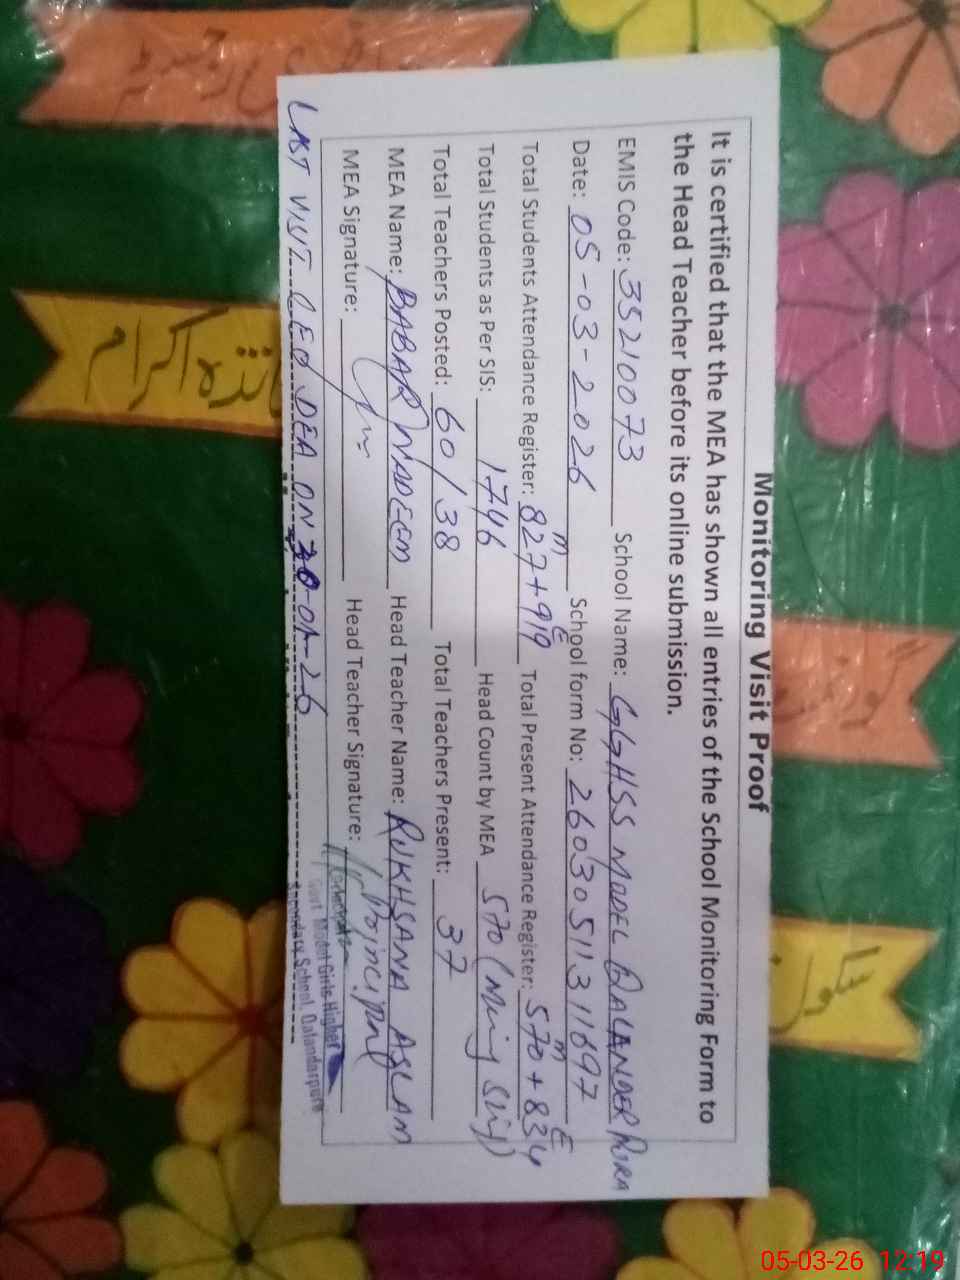 Monitoring Visit Proof
It is certified that the MEA has shown all entries of the School Monitoring Form to
the Head Teacher before its online submission.
EMIS Code: 35210073 School Name: GGHSS MODEL QALANDER PURA
Date: 05-03-2026 School form No: 26030511311697
Total Students Attendance Register: 827 M + 919 E Total Present Attendance Register: 570 M + 834 E
Total Students as Per SIS: 1746 Head Count by MEA 570 (
Total Teachers Posted: 60/38 Total Teachers Present: 37
MEA Name: BABAR NADEEM Head Teacher Name: RUKHSANA ASLAM
MEA Signature: Head Teacher Signature: Principal
Govt. Model Girls Higher
Secondary School, Qalandarpura
LAST VISIT CEO DEA ON
اکرام
05-03-26 12:19